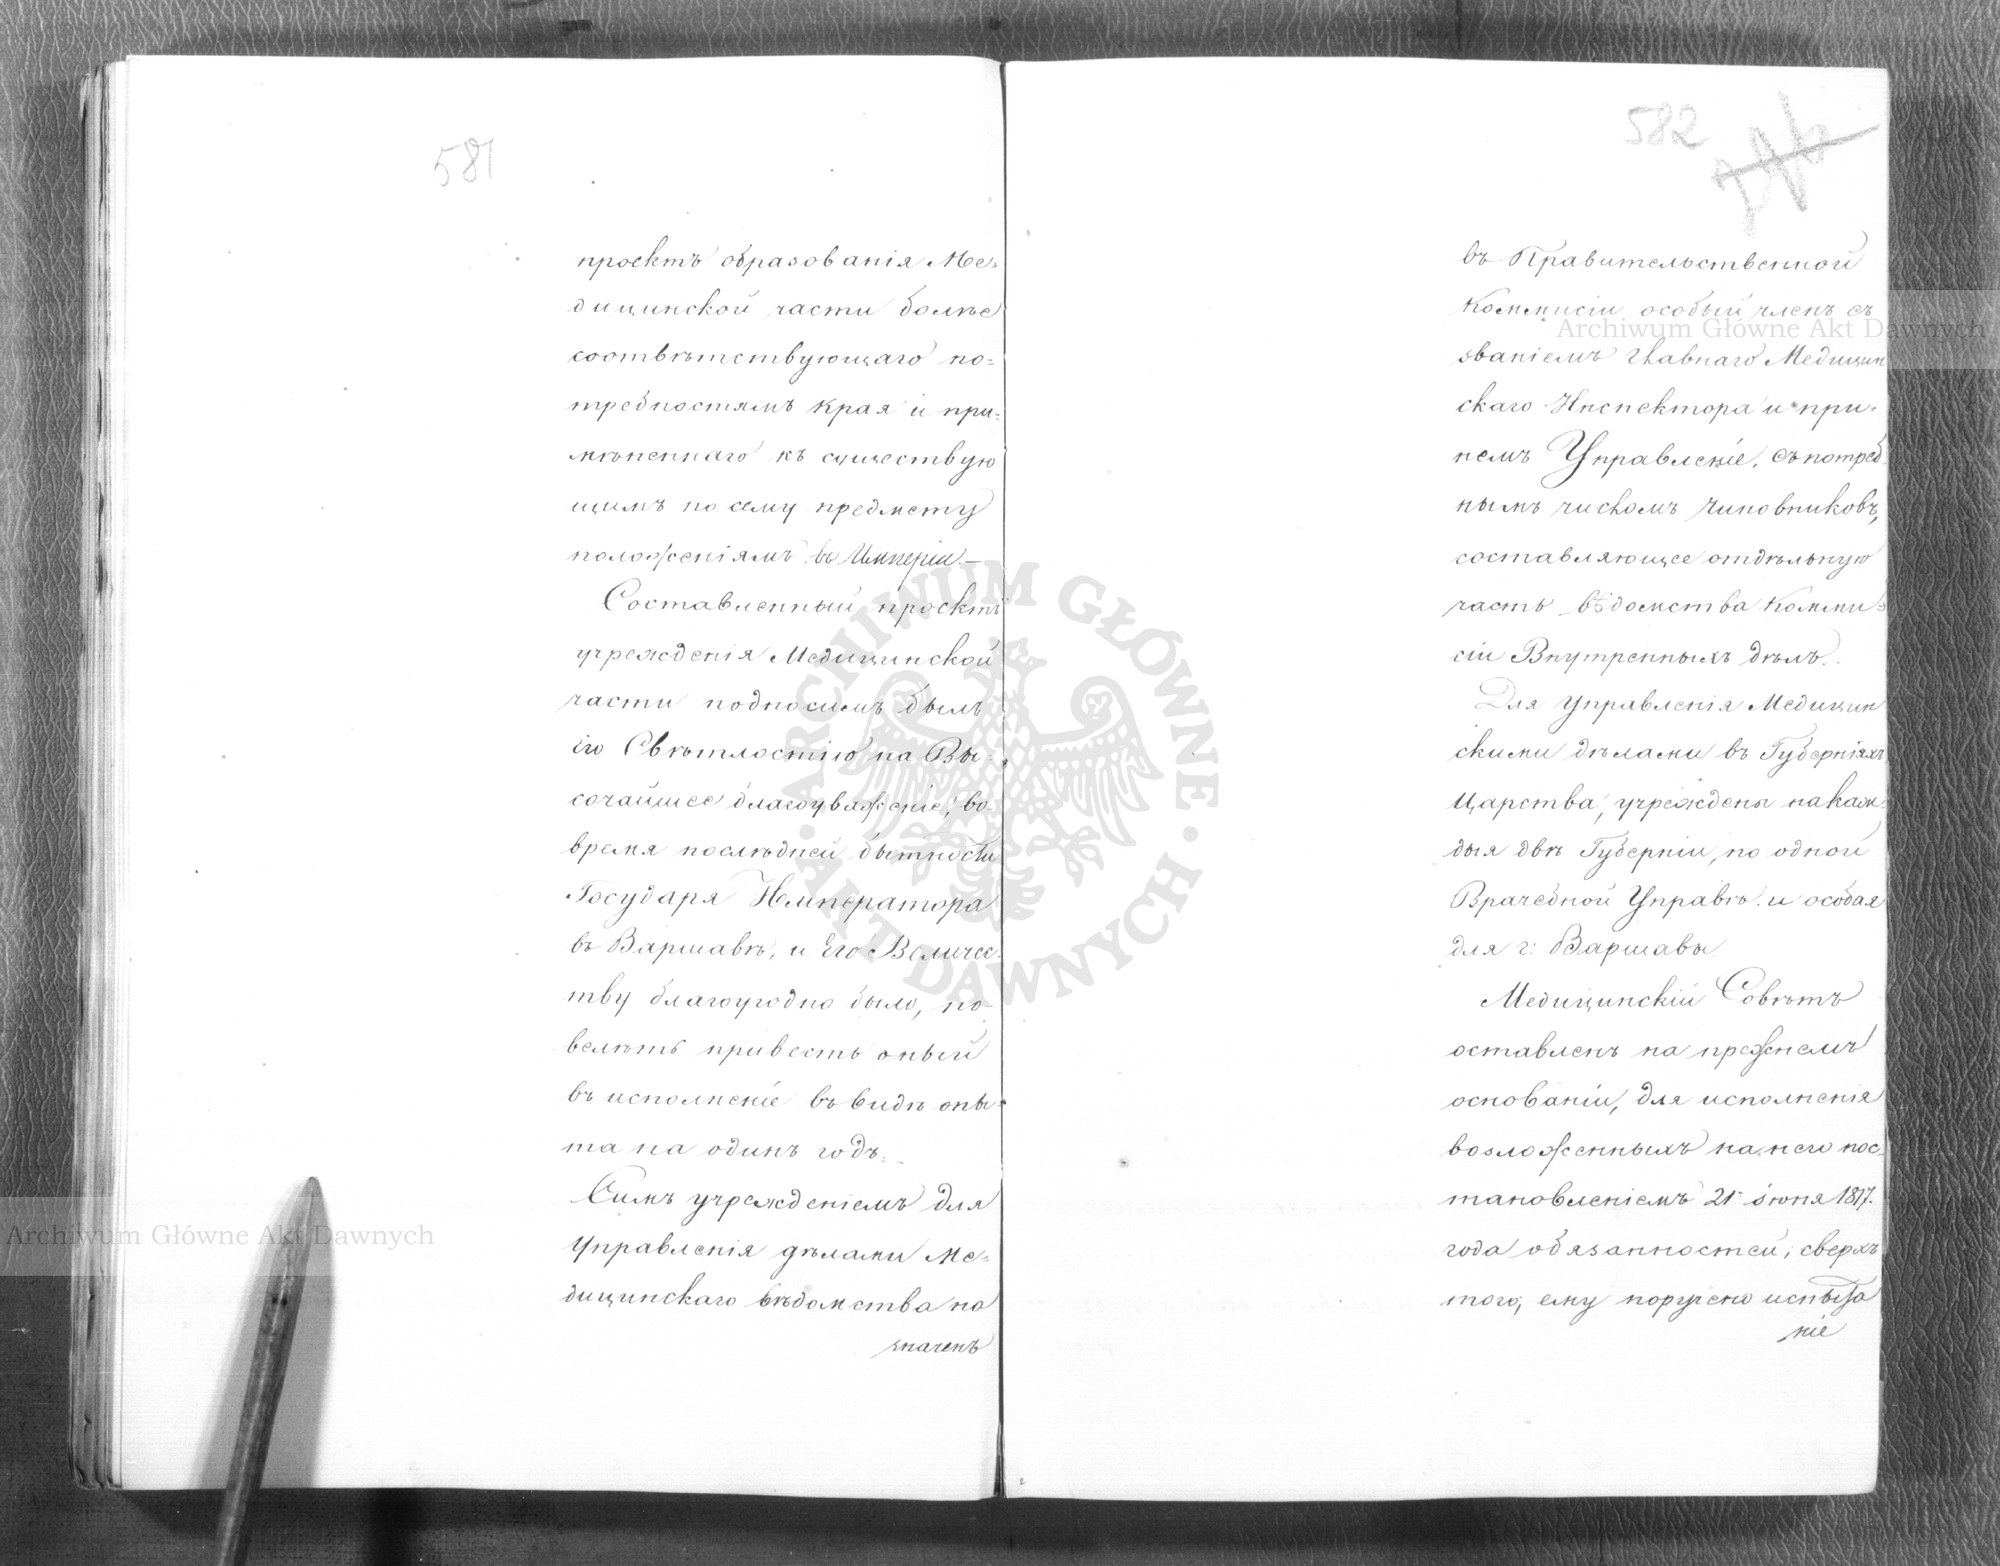 581
проектъ образованія Ме-
дицинской части болѣе
соотвѣтствующаго по-
требностямъ края и при-
мѣненнаго къ существую
щимъ по сему предмету
положеніямъ въ Имперіи.—
Составленный проектъ
учрежденія Медицинской
части подносимъ былъ
Его Свѣтлостію на Вы-
сочайшее благоуваженіе, во
время послѣдней бытности
Государя Императора
въ Варшавѣ, и Его Величес
тву благоугодно было, по-
велѣть привесть оный
въ исполненіе въ видѣ опы-
та на одинъ годъ.
Симъ учрежденіемъ для
Управленія дѣлами Ме-
дицинскаго вѣдомства на
значенъ
582
въ Правительственной
Коммисіи особый членъ съ
званіемъ Главнаго Медицин
скаго Инспектора и при
немъ Управленіе, съ потреб
нымъ числомъ Чиновниковъ,
составляющее отдѣльную
часть вѣдомства Комми-
сіи Внутренныхъ дѣлъ.
Для Управленія Медицин
скими дѣлами въ Губерніяхъ
Царства, учреждены на каж
дыя двѣ Губерніи, по одной
Врачебной Управѣ и особая
для г. Варшавы
Медицинскій Совѣтъ
оставленъ на прежнемъ
основаніи, для исполненія
возложенныхъ на него пос-
тановленіемъ 21 Іюня 1817.
года обязанностей; сверхъ
того, ему поручено испыта
ніе
ARCHIWUM GŁÓWNE AKT DAWNYCH
Archiwum Główne Akt Dawnych
Archiwum Główne Akt Dawnych